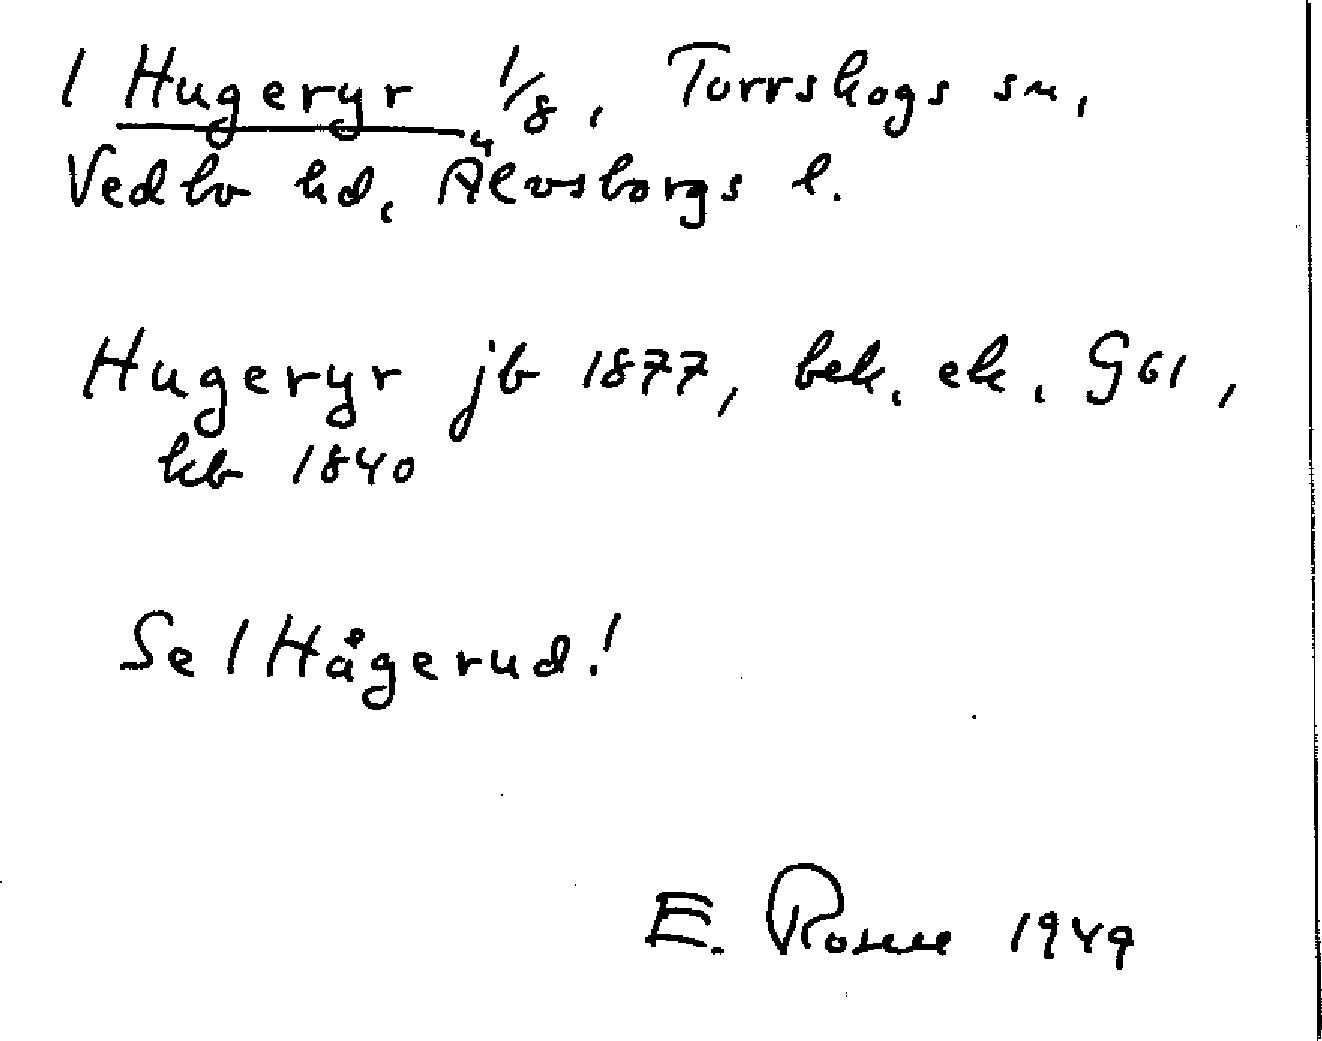 1 Hugeryr 1/8, Torrskogs sn,
Vedbo hd, Älvsborgs l.
Hugeryr jb 1877, bek. ek. G61,
kb 1840
Se 1 Hågerud!
E. Rosell 1949